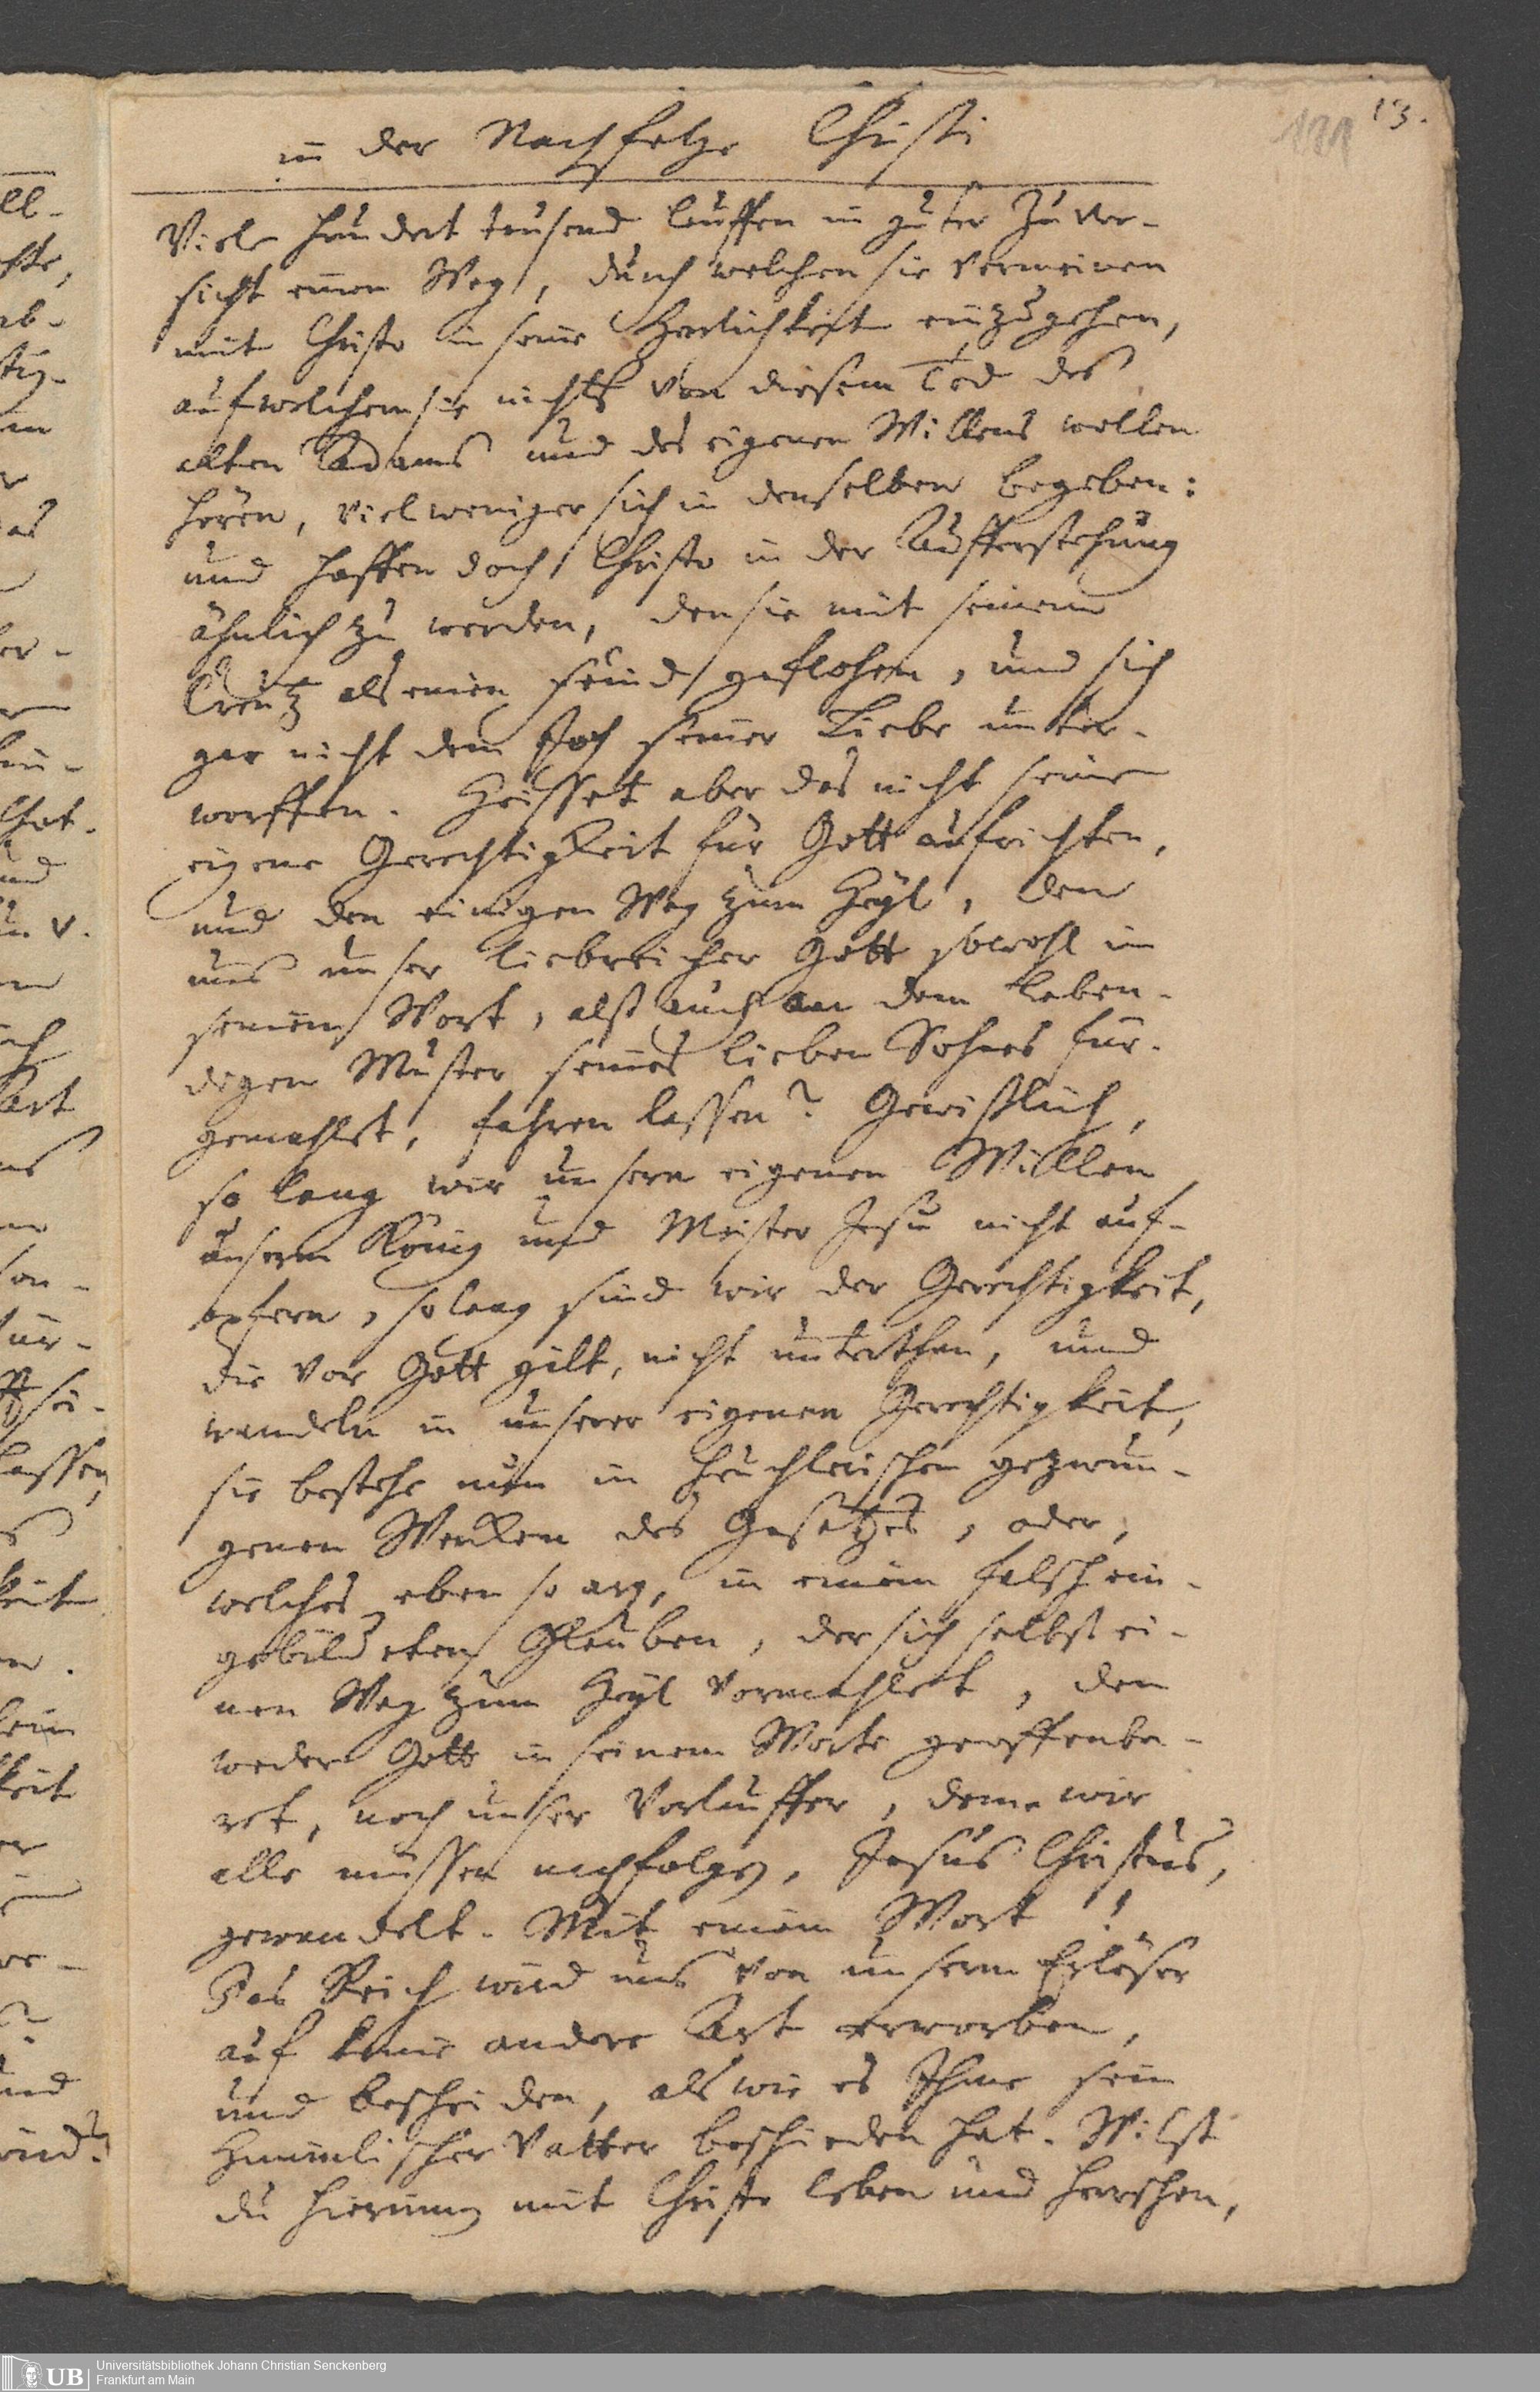 13.
in der Nachfolge Christi
Viele hundert tausend lauffen in guter Zuver-
sicht einen Weg, durch welchen sie vermeinen
mit Christo in seine Herrlichkeit einzugehen,
auf welchem sie nichts von diesem Tod des
alten Adams und des eigenen Willens wollen
hören, viel weniger sich in denselben begeben:
und hoffen doch Christo in der Aufferstehung
ähnlich zu werden, den sie mit seinem
Creutz als einen feind geflohen, und sich
gar nicht dem Joch seiner Liebe unter-
worffen. Heisset aber das nicht seine
eigene Gerechtigkeit für Gott aufrichten,
und den einigen Weg zum Heyl, den
uns unser liebreicher Gott sowohl in
seinem Wort, alß auch an dem leben-
digen Muster seines lieben Sohnes für-
gemahlet, fahren lassen? Gewißlich,
so lang wir unsern eigenen Willen
unserm König und Meister Jesu nicht auf-
opfern, so lang sind wir der Gerechtigkeit,
die vor Gott gilt, nicht unterthan, und
wandeln in unserer eigenen Gerechtigkeit,
sie bestehe nun in heuchlerischen gezwun-
genen Werken des Gesetzes, oder,
welches eben so arg, in einem falsch ein-
gebildeten Glauben, der sich selbst ei-
nen Weg zum Heyl vormahlet, den
weder Gott in seinem Worte geoffenba-
ret, noch unser Vorlauffer, deme wir
alle müssen nachfolgen, Jesus Christus,
gewandelt. Mit einem Wort!
Das Reich wird uns von unserm Erlöser
auf keine andere Art erworben,
und bescheiden, als wie es Ihme sein
Himmlischer Vatter beschieden hat. Wilst
du hierum mit Christo leben und herrschen,
UB
Universitätsbibliothek Johann Christian Senckenberg
Frankfurt am Main